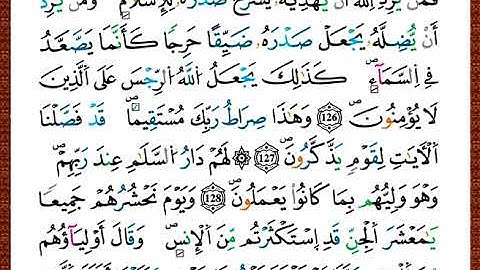 فَمَنْ يُرِدِ اللَّهُ أَنْ يَهْدِيَهُ يَشْرَحْ صَدْرَهُ لِلْإِسْلَامِ وَمَنْ يُرِدْ
أَنْ يُضِلَّهُ يَجْعَلْ صَدْرَهُ ضَيِّقًا حَرَجًا كَأَنَّمَا يَصَّعَّدُ
فِي السَّمَآءِ كَذَٰلِكَ يَجْعَلُ اللَّهُ الرِّجْسَ عَلَى الَّذِينَ
لَا يُؤْمِنُونَ 126 وَهَٰذَا صِرَاطُ رَبِّكَ مُسْتَقِيمًا قَدْ فَصَّلْنَا
الْآيَاتِ لِقَوْمٍ يَذَّكَّرُونَ 127 ۞ لَهُمْ دَارُ السَّلَٰمِ عِنْدَ رَبِّهِمْ
وَهُوَ وَلِيُّهُم بِمَا كَانُوا يَعْمَلُونَ 128 وَيَوْمَ نَحْشُرُهُمْ جَمِيعًا
يَٰمَعْشَرَ الْجِنِّ قَدِ إسْتَكْثَرْتُم مِّنَ الْإِنسِ وَقَالَ أَوْلِيَآؤُهُم